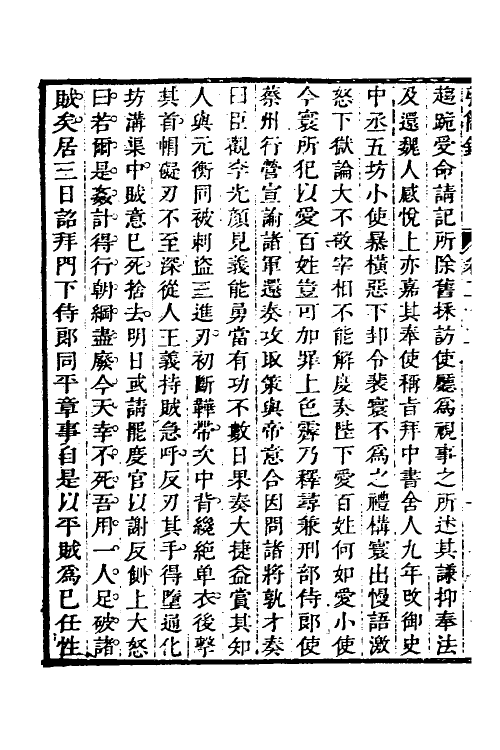 趨跪受命請記所除舊採訪使廳為視事之所述其謙抑奉法
及還魏人感悅上亦嘉其奉使稱旨拜中書舍人九年改御史
中丞五坊小使暴橫惡下邽令裴寰不為之禮構寰出慢語激
怒下獄論大不敬宰相不能解度奏陛下愛百姓何如愛小使
今寰所犯以愛百姓豈可加罪上色霽乃釋尋兼刑部侍郎使
蔡州行營宣諭諸軍還奏攻取策與帝意合因問諸將孰才奏
曰臣觀李光顏見義能勇當有功不數日果奏大捷益賞其知
人與元衡同被刺盜三進刃初斷鞾帶次中背纔絕单衣後擊
其首帽礙刃不至深從人王義持賊急呼反刃其手得墮通化
坊溝渠中賊意已死捨去明日或請罷度官以謝反側上大怒
曰若爾是姦計得行朝綱盡廢今天幸不死吾用一人足破諸
賊矣居三日詔拜門下侍郎同平章事自是以平賊為已任性